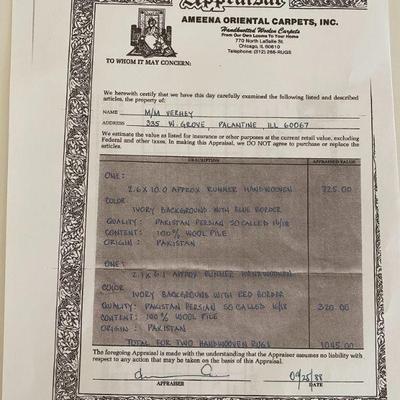 Appraisal
AMEENA ORIENTAL CARPETS, INC.
Handknotted Woolen Carpets
From Our Own Looms To Your Home
770 North LaSalle St.
Chicago, IL 60610
Telephone: (312) 266-RUGS
TO WHOM IT MAY CONCERN:
We herewith certify that we have this day carefully examined the following listed and described
articles, the property of:
NAME M/M VERHEY
ADDRESS 335 W. GROVE, PALANTINE ILL 60067
We estimate the value as listed for insurance or other purposes at the current retail value, excluding
Federal and other taxes. In making this Appraisal, we DO NOT agree to purchase or replace the
articles.
DESCRIPTION APPRAISED VALUE
ONE:
2.6 X 10.0 APPROX RUNNER HANDWOVEN 725.00
COLOR
IVORY BACKGROUND WITH BLUE BORDER
QUALITY: PAKISTAN PERSIAN SO CALLED 16/18
CONTENT: 100% WOOL PILE
ORIGIN: PAKISTAN
ONE:
2.1 X 6.1 APPROX RUNNER HANDWOVEN
COLOR
IVORY BACKGROUND WITH RED BORDER
QUALITY: PAKISTAN PERSIAN SO CALLED 16/18 320.00
CONTENT: 100% WOOL PILE
ORIGIN: PAKISTAN
TOTAL FOR TWO HANDWOVEN RUGS 1045.00
The foregoing Appraisal is made with the understanding that the Appraiser assumes no liability with
respect to any action that may be taken on the basis of this Appraisal.
09/25/88
APPRAISER DATE